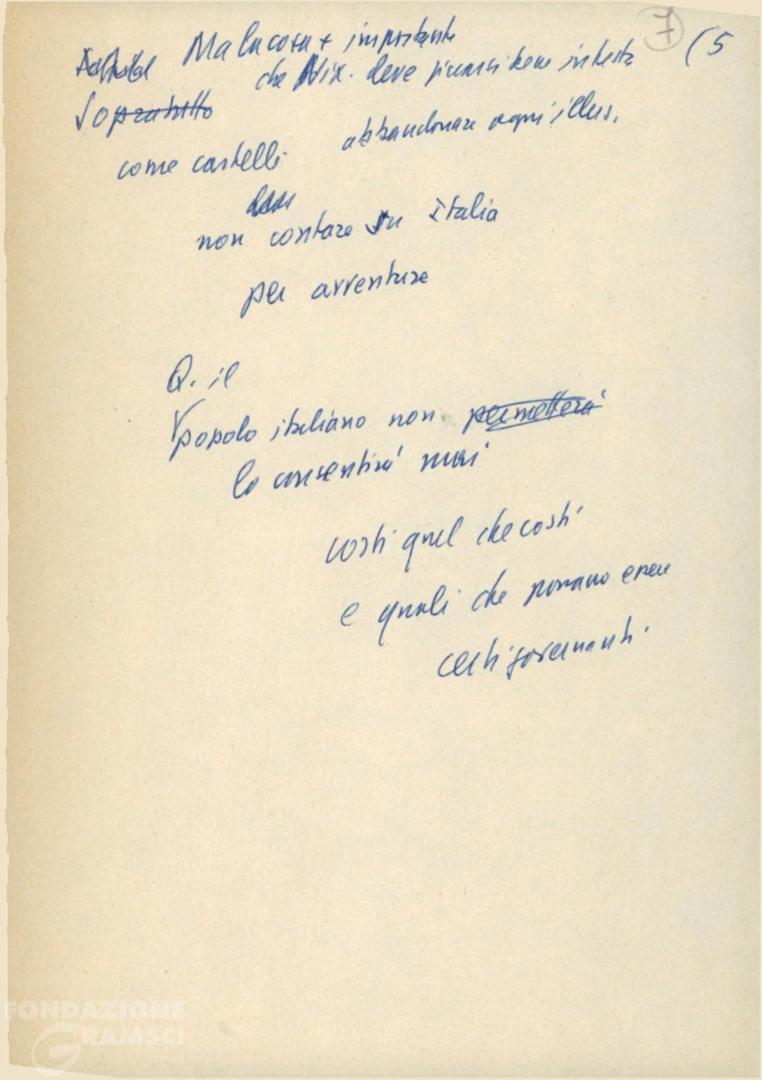 7 (5
Ma la cosa + importante
che Nix. deve ficcarsi bene in testa
Sopratutto
abbandonare ogni illus.
come castelli
non contare su Italia
per avventure
Q. il
popolo italiano non permetterà
lo consentirà mai
costi quel che costi
e quali che possano essere
certi governanti.
FONDAZIONE
GRAMSCI